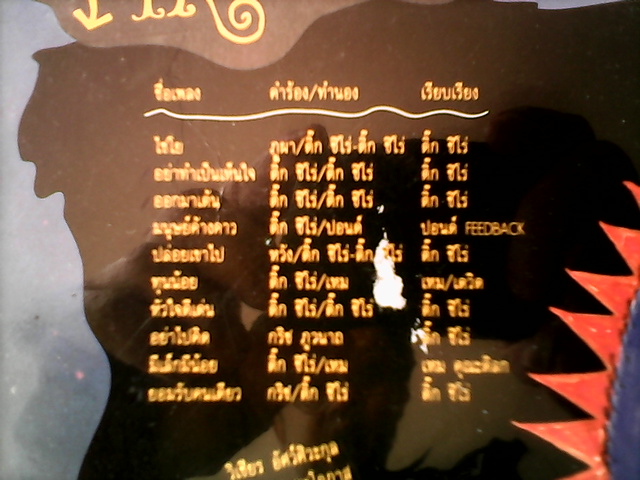 ชื่อเพลง คำร้อง/ทำนอง เรียบเรียง
ไชโย ภูผา/ติ๊ก ชีโร่-ติ๊ก ชีโร่ ติ๊ก ชีโร่
อย่าทำเป็นเห็นใจ ติ๊ก ชีโร่/ติ๊ก ชีโร่ ติ๊ก ชีโร่
ออกมาเต้น ติ๊ก ชีโร่/ติ๊ก ชีโร่ ติ๊ก ชีโร่
มนุษย์ค้างคาว ติ๊ก ชีโร่/ปอนด์ ปอนด์ FEEDBACK
ปล่อยเขาไป หวัง/ติ๊ก ชีโร่-ติ๊ก ชีโร่ ติ๊ก ชีโร่
ทุนน้อย ติ๊ก ชีโร่/เทม เทม/เดวิด
หัวใจดีเด่น ติ๊ก ชีโร่/ติ๊ก ชีโร่ ติ๊ก ชีโร่
อย่าไปคิด กริช ติ๊ก ชีโร่
มีเล็กมีน้อย ติ๊ก ชีโร่/เทม เทม
ยอมรับคนเดียว กริช/ติ๊ก ชีโร่ ติ๊ก ชีโร่
วิเชียร อัศว์ศิวะกุล